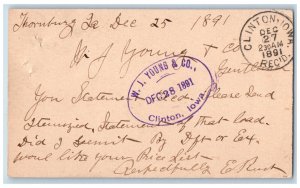 Thornburg Ia Dec 25 1891
W J Young & Co
CLINTON, IOWA
DEC
27
230AM
1891
REC'D.
Gents
W. J. YOUNG & CO.,
DEC 28 1891
Clinton, Iowa.
Your Statement Recd. Please Send
Itemized Statement of that load.
Did I remit By Dft or Ex.
would like your Price List
Respectfully E